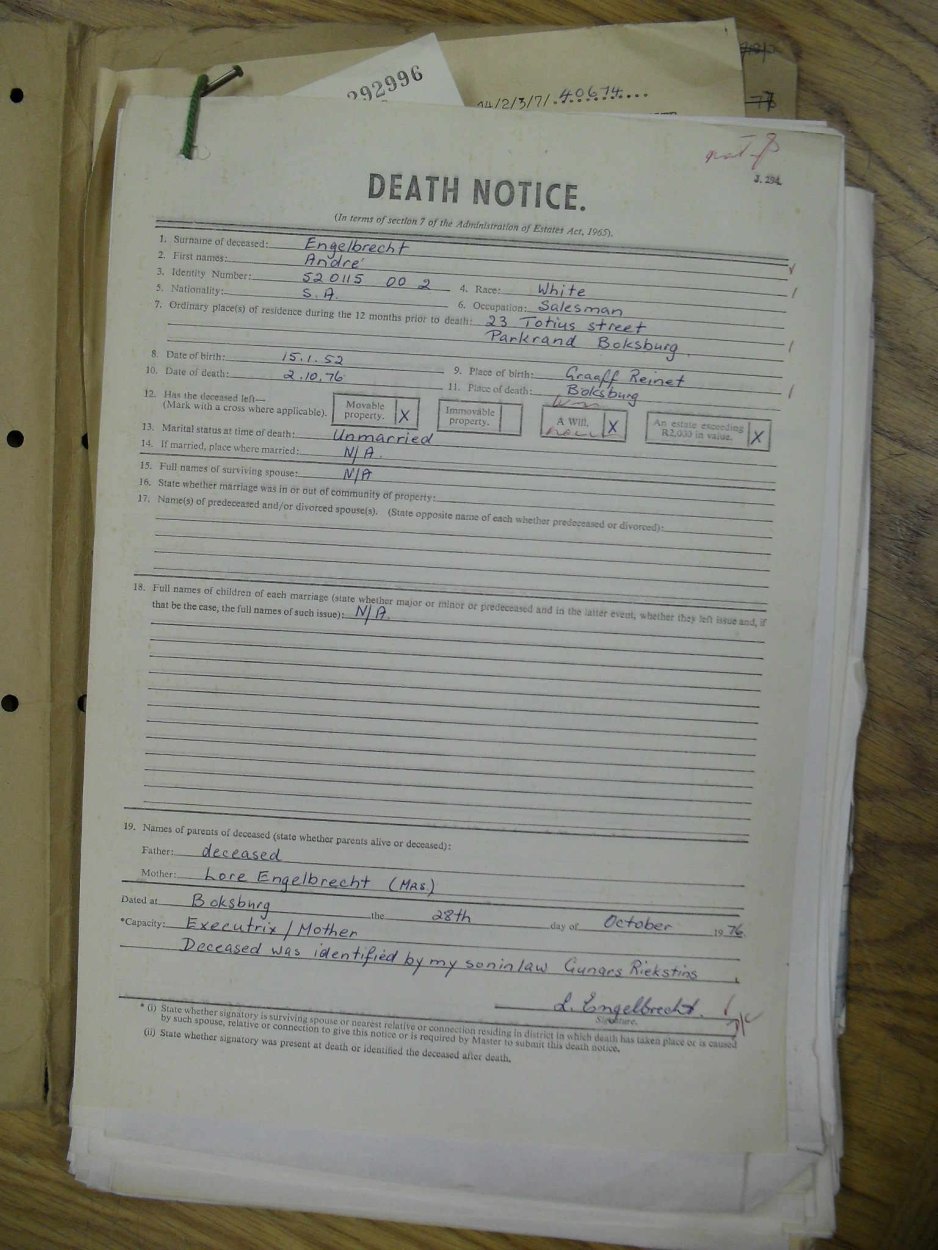 292996
14/2/3/7/ 40674
77
J. 294.
DEATH NOTICE.
(In terms of section 7 of the Administration of Estates Act, 1965).
1. Surname of deceased: Engelbrecht
2. First names: André
3. Identity Number: 520115 00 2 4. Race: White
5. Nationality: S.A. 6. Occupation: Salesman
7. Ordinary place(s) of residence during the 12 months prior to death: 23 Totius street
Parkrand Boksburg.
8. Date of birth: 15.1.52 9. Place of birth: Graaff Reinet
10. Date of death: 2.10.76 11. Place of death: Boksburg
12. Has the deceased left— Movable property. X Immovable property. A Will, X An estate exceeding R2,000 in value. X
(Mark with a cross where applicable).
13. Marital status at time of death: Unmarried
14. If married, place where married: N/A.
15. Full names of surviving spouse: N/A
16. State whether marriage was in or out of community of property:
17. Name(s) of predeceased and/or divorced spouse(s). (State opposite name of each whether predeceased or divorced):
18. Full names of children of each marriage (state whether major or minor or predeceased and in the latter event, whether they left issue and, if
that be the case, the full names of such issue): N/A.
19. Names of parents of deceased (state whether parents alive or deceased):
Father: deceased
Mother: Lore Engelbrecht (MRS.)
Dated at Boksburg the 28th day of October 1976.
*Capacity: Executrix / Mother
Deceased was identified by my soninlaw Gunars Riekstins
L. Engelbrecht.
Signature.
* (i) State whether signatory is surviving spouse or nearest relative or connection residing in district in which death has taken place or is caused
by such spouse, relative or connection to give this notice or is required by Master to submit this death notice.
(ii) State whether signatory was present at death or identified the deceased after death.